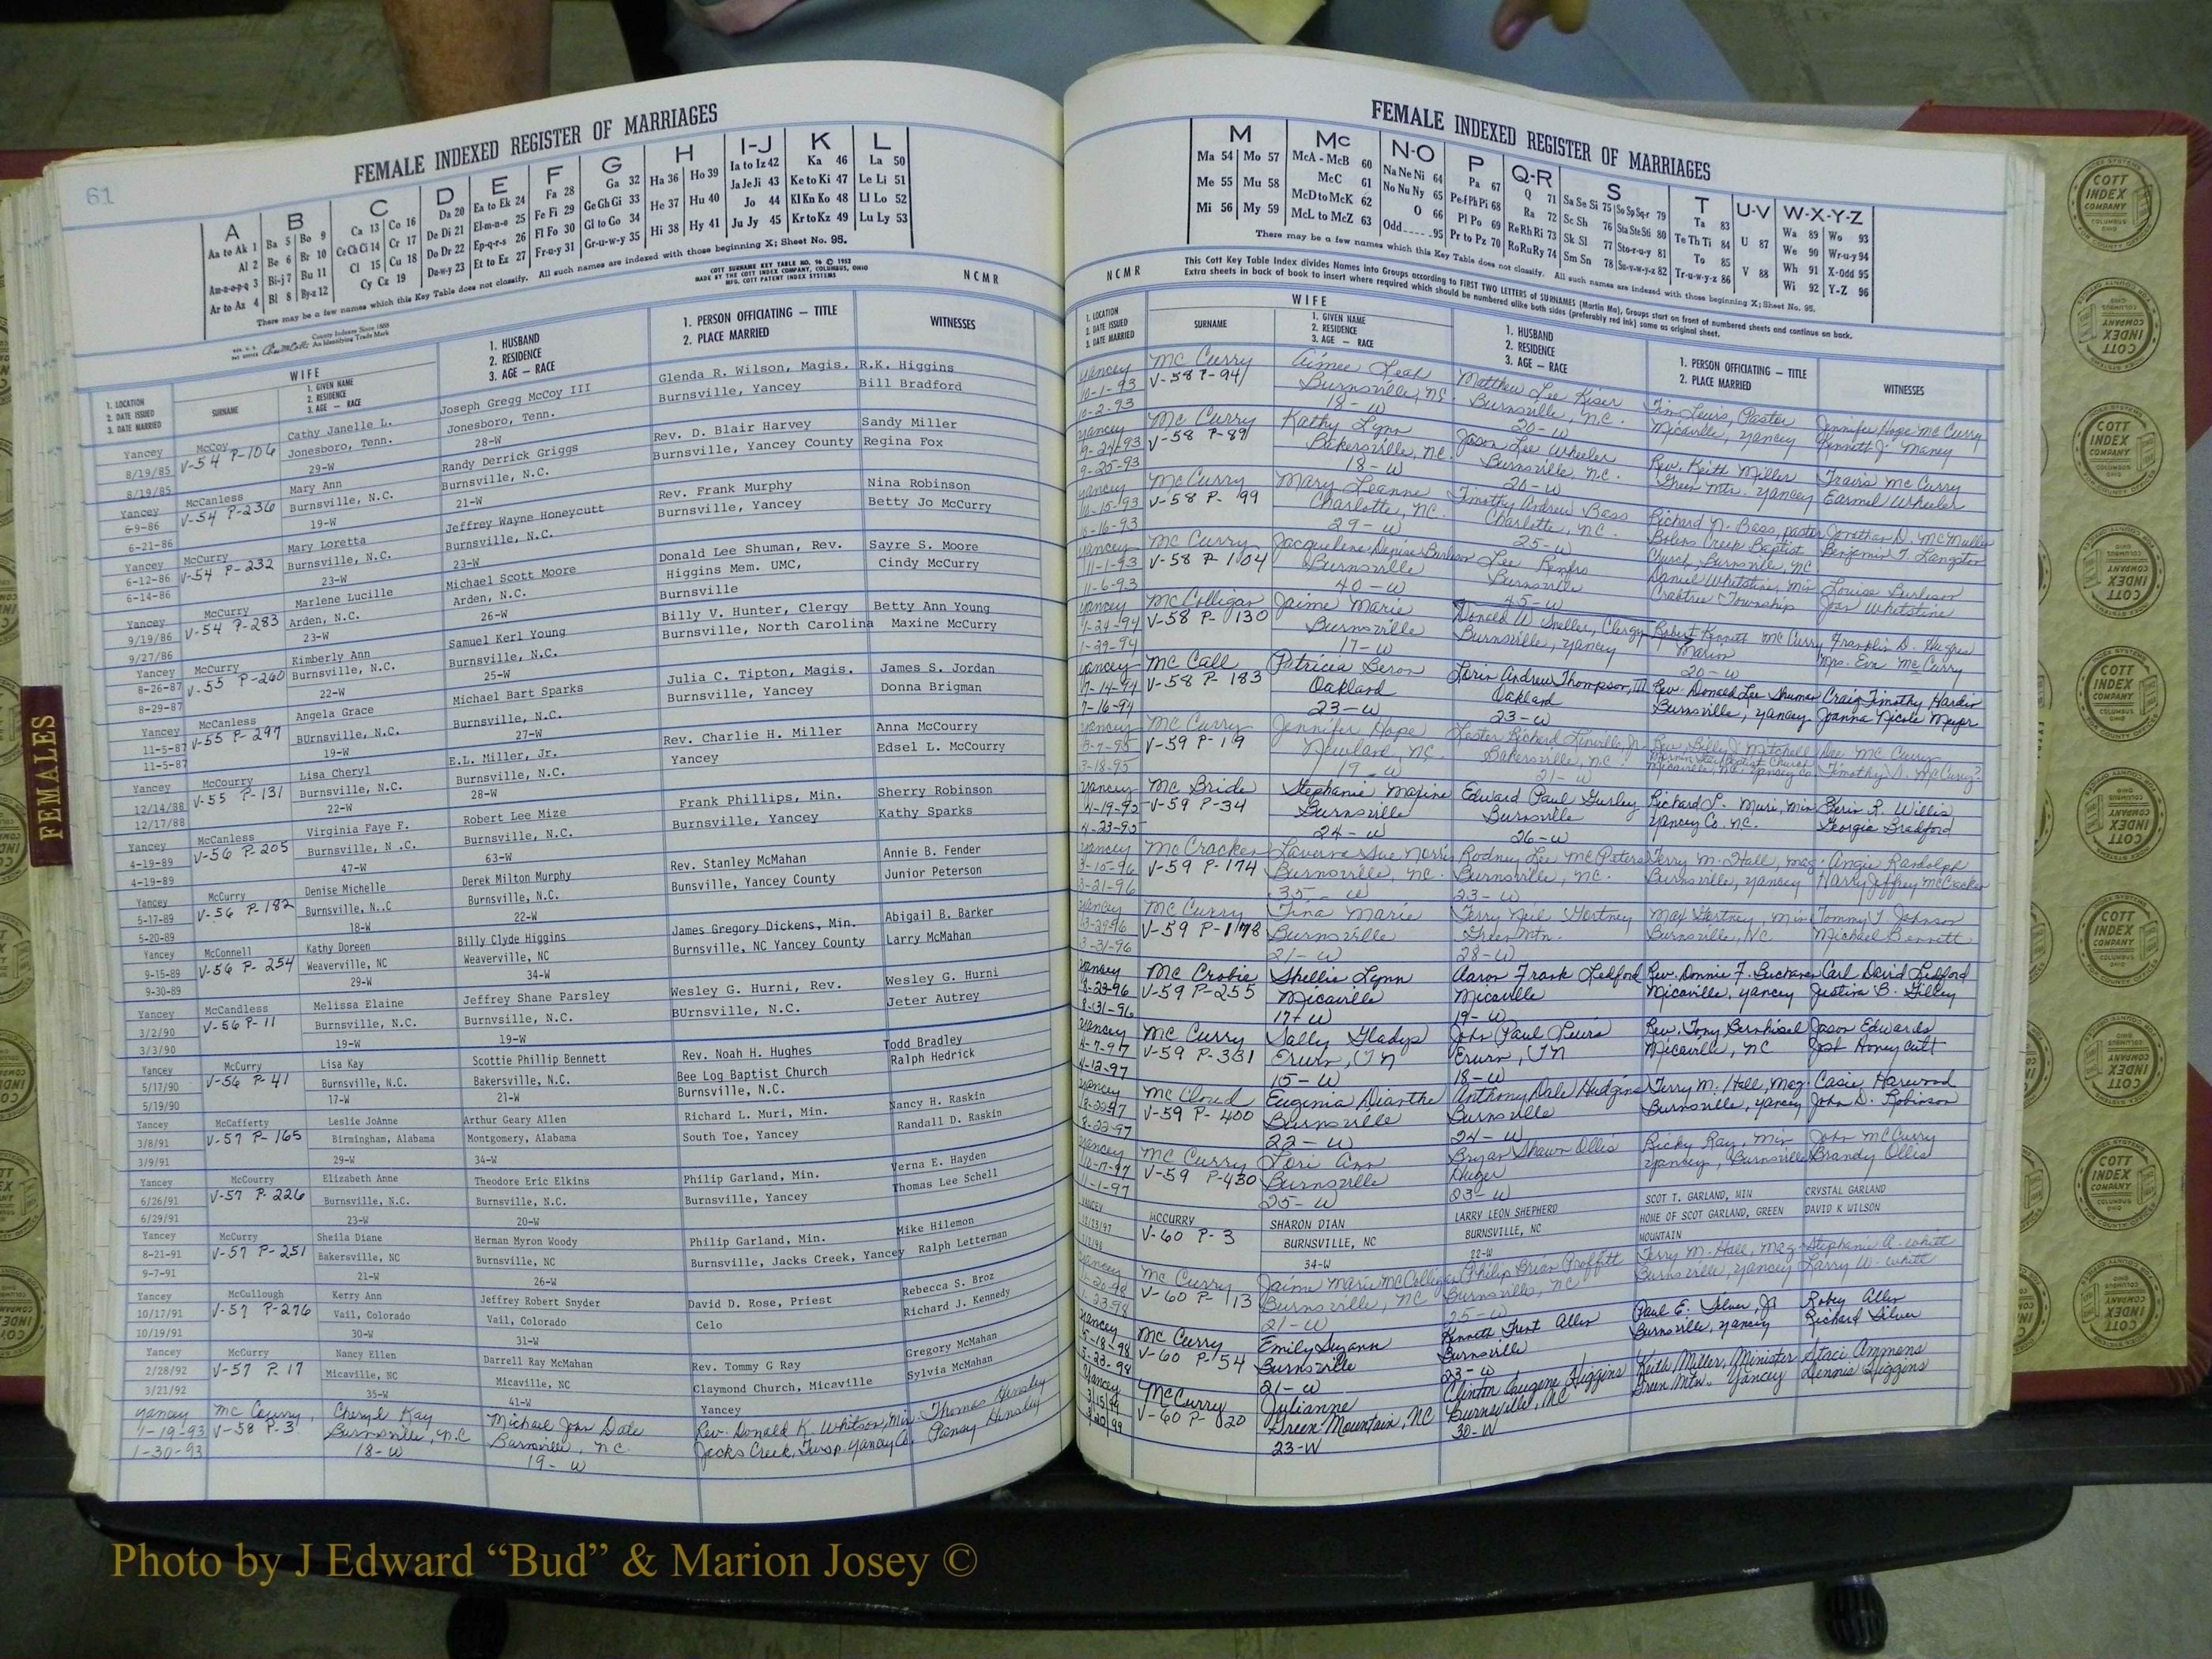 61
FEMALE INDEXED REGISTER OF MARRIAGES
A B C D E F G H I-J K L
Aa to Ak 1 Ba 5 Bo 9 Ca 13 Co 16 Da 20 Ea to Ek 24 Fa 28 Ga 32 Ha 36 Ho 39 Ia to Iz 42 Ka 46 La 50
Al 2 Be 6 Br 10 Ce Ch Ci 14 Cr 17 De Di 21 El-m-n-o 25 Fe Fi 29 Ge Gh Gi 33 He 37 Hu 40 Ja Je Ji 43 Ke to Ki 47 Le Li 51
Am-n-o-p-q 3 Bi-j 7 Bu 11 Cl 15 Cu 18 Do Dr 22 Ep-q-r-s 26 Fl Fo 30 Gl to Go 34 Hi 38 Hy 41 Jo 44 Kl Kn Ko 48 Ll Lo 52
Ar to Az 4 Bl 8 By-z 12 Cy Cz 19 Du-w-y 23 Et to Ez 27 Fr-u-y 31 Gr-u-w-y 35 Ju Jy 45 Kr to Kz 49 Lu Ly 53
There may be a few names which this Key Table does not classify. All such names are indexed with those beginning X; Sheet No. 95.
COTT SURNAME KEY TABLE NO. 96 © 1952
MADE BY THE COTT INDEX COMPANY, COLUMBUS, OHIO
MFG. COTT PATENT INDEX SYSTEMS
NCMR
County Indexes Since 1888
An Identifying Trade Mark
WIFE
1. LOCATION
2. DATE ISSUED
3. DATE MARRIED
SURNAME
1. GIVEN NAME
2. RESIDENCE
3. AGE — RACE
1. HUSBAND
2. RESIDENCE
3. AGE — RACE
1. PERSON OFFICIATING — TITLE
2. PLACE MARRIED
WITNESSES
Yancey McCoy Cathy Janelle L. Joseph Gregg McCoy III Glenda R. Wilson, Magis. R.K. Higgins
8/19/85 V-54 P-106 Jonesboro, Tenn. Jonesboro, Tenn. Burnsville, Yancey Bill Bradford
8/19/85 29-W 28-W
Yancey McCanless Mary Ann Randy Derrick Griggs Rev. D. Blair Harvey Sandy Miller
6-9-86 V-54 P-236 Burnsville, N.C. Burnsville, N.C. Burnsville, Yancey County Regina Fox
6-21-86 19-W 21-W
Yancey McCurry Mary Loretta Jeffrey Wayne Honeycutt Rev. Frank Murphy Nina Robinson
6-12-86 V-54 P-232 Burnsville, N.C. Burnsville, N.C. Burnsville, Yancey Betty Jo McCurry
6-14-86 23-W 23-W
Yancey McCurry Marlene Lucille Michael Scott Moore Donald Lee Shuman, Rev. Sayre S. Moore
9/19/86 V-54 P-283 Arden, N.C. Arden, N.C. Higgins Mem. UMC, Cindy McCurry
9/27/86 23-W 26-W Burnsville
Yancey McCurry Kimberly Ann Samuel Kerl Young Billy V. Hunter, Clergy Betty Ann Young
8-26-87 V-55 P-260 Burnsville, N.C. Burnsville, N.C. Burnsville, North Carolina Maxine McCurry
8-29-87 22-W 25-W
Yancey McCanless Angela Grace Michael Bart Sparks Julia C. Tipton, Magis. James S. Jordan
11-5-87 V-55 P-297 BUrnsville, N.C. Burnsville, N.C. Burnsville, Yancey Donna Brigman
11-5-87 19-W 27-W
Yancey McCourry Lisa Cheryl E.L. Miller, Jr. Rev. Charlie H. Miller Anna McCourry
12/14/88 V-55 P-131 Burnsville, N.C. Burnsville, N.C. Yancey Edsel L. McCourry
12/17/88 22-W 28-W
Yancey McCanless Virginia Faye F. Robert Lee Mize Frank Phillips, Min. Sherry Robinson
4-19-89 V-56 P-205 Burnsville, N .C. Burnsville, N.C. Burnsville, Yancey Kathy Sparks
4-19-89 47-W 63-W
Yancey McCurry Denise Michelle Derek Milton Murphy Rev. Stanley McMahan Annie B. Fender
5-17-89 V-56 P-182 Burnsville, N..C Burnsville, N.C. Bunsville, Yancey County Junior Peterson
5-20-89 18-W 22-W
Yancey McConnell Kathy Doreen Billy Clyde Higgins James Gregory Dickens, Min. Abigail B. Barker
9-15-89 V-56 P-254 Weaverville, NC Weaverville, NC Burnsville, NC Yancey County Larry McMahan
9-30-89 29-W 34-W
Yancey McCandless Melissa Elaine Jeffrey Shane Parsley Wesley G. Hurni, Rev. Wesley G. Hurni
3/2/90 V-56 P-11 Burnsville, N.C. Burnvsille, N.C. BUrnsville, N.C. Jeter Autrey
3/3/90 19-W 19-W
Yancey McCurry Lisa Kay Scottie Phillip Bennett Rev. Noah H. Hughes Todd Bradley
5/17/90 V-56 P-41 Burnsville, N.C. Bakersville, N.C. Bee Log Baptist Church Ralph Hedrick
5/19/90 17-W 21-W Burnsville, N.C.
Yancey McCafferty Leslie JoAnne Arthur Geary Allen Richard L. Muri, Min. Nancy H. Raskin
3/8/91 V-57 P-165 Birmingham, Alabama Montgomery, Alabama South Toe, Yancey Randall D. Raskin
3/9/91 29-W 34-W
Yancey McCourry Elizabeth Anne Theodore Eric Elkins Philip Garland, Min. Verna E. Hayden
6/26/91 V-57 P-226 Burnsville, N.C. Burnsville, N.C. Burnsville, Yancey Thomas Lee Schell
6/29/91 23-W 20-W
Yancey McCurry Sheila Diane Herman Myron Woody Philip Garland, Min. Mike Hilemon
8-21-91 V-57 P-251 Bakersville, NC Burnsville, NC Burnsville, Jacks Creek, Yancey Ralph Letterman
9-7-91 21-W 26-W
Yancey McCullough Kerry Ann Jeffrey Robert Snyder David D. Rose, Priest Rebecca S. Broz
10/17/91 V-57 P-276 Vail, Colorado Vail, Colorado Celo Richard J. Kennedy
10/19/91 30-W 31-W
Yancey McCurry Nancy Ellen Darrell Ray McMahan Rev. Tommy G Ray Gregory McMahan
2/28/92 V-57 P.17 Micaville, NC Micaville, NC Claymond Church, Micaville Sylvia McMahan
3/21/92 35-W 41-W Yancey
Yancey Mc Curry, Cheryl Kay Michael Jon Dale Rev. Donald K. Whitson, Min Thomas Hensley
1-19-93 V-58 P.3 Burnsville, N.C Burnsville, N.C. Jacks Creek, Twsp. Yancey Co. Pansy Hensley
1-30-93 18-W 19-W
FEMALES
FEMALE INDEXED REGISTER OF MARRIAGES
M Mc N-O P Q-R S T U-V W-X-Y-Z
Ma 54 Mo 57 McA - McB 60 Na Ne Ni 64 Pa 67 Q 71 Sa Se Si 75 So Sp Sq-r 79 Ta 83 Wa 89 Wo 93
Me 55 Mu 58 McC 61 No Nu Ny 65 Pe-f Ph Pi 68 Ra 72 Sc Sh 76 Sta Ste Sti 80 Te Th Ti 84 U 87 We 90 Wr-u-y 94
Mi 56 My 59 McD to McK 62 O 66 Pl Po 69 Re Rh Ri 73 Sk Sl 77 Sto-r-u-y 81 To 85 Wh 91 X-Odd 95
McL to McZ 63 Odd 95 Pr to Pz 70 Ro Ru Ry 74 Sm Sn 78 Su-v-w-y-z 82 Tr-u-w-y-z 86 V 88 Wi 92 Y-Z 96
There may be a few names which this Key Table does not classify. All such names are indexed with those beginning X; Sheet No. 95.
NCMR
This Cott Key Table Index divides Names into Groups according to FIRST TWO LETTERS of SURNAMES (Martin Ma). Groups start on front of numbered sheets and continue on back.
Extra sheets in back of book to insert where required which should be numbered alike both sides (preferably red ink) same as original sheet.
WIFE
1. LOCATION
2. DATE ISSUED
3. DATE MARRIED
SURNAME
1. GIVEN NAME
2. RESIDENCE
3. AGE — RACE
1. HUSBAND
2. RESIDENCE
3. AGE — RACE
1. PERSON OFFICIATING — TITLE
2. PLACE MARRIED
WITNESSES
Yancey Mc Curry Aimee Leah Matthew Lee Kiser Tim Lewis, Pastor Jennifer Hope McCurry
10-1-93 V-58 P-94 Burnsville, NC. Burnsville, N.C. Micaville, Yancey Kenneth J. Maney
10-2-93 18-W 20-W
Yancey Mc Curry Kathy Lynn Jason Lee Wheeler Rev. Keith Miller Travis McCurry
9-24-93 V-58 P-89 Bakersville, NC. Burnsville, N.C. Green Mtn. Yancey Earmel Wheeler
9-25-93 18-W 20-W
Yancey McCurry Mary Leanne Timothy Andrew Bass Richard N. Bass, pastor Jonathan D. McMullen
10-15-93 V-58 P-99 Charlotte, NC. Charlotte, NC. Bolens Creek Baptist Benjamin T. Langston
10-16-93 29-W 25-W Church, Burnsville, NC
Yancey Mc Curry Jacquelene Denise Burleson Lee Renfro Daniel Whitstine, Min Louise Burleson
11-1-93 V-58 P-104 Burnsville Burnsville Crabtree Township Joan Whitstine
11-6-93 40-W 45-W
Yancey McColligan Jaime Marie Donald W. Sneller, Clergy Robert Kenneth McCurry Franklin D. Hughes
1-24-94 V-58 P-130 Burnsville Burnsville, Yancey Marion Mrs. Eva McCurry
1-29-94 17-W 20-W
Yancey Mc Call Patricia Geron Lorin Andrew Thompson, III Rev. Donald Lee Shuman Craig Timothy Hardin
7-14-94 V-58 P-183 Oakland Oakland Burnsville, Yancey Joanna Nicole Meyer
7-16-94 23-W 23-W
Yancey Mc Curry Jennifer Hope Lester Richard Linville, Jr. Rev. Billy J. Mitchell Lee McCurry
3-7-95 V-59 P-19 Newland, NC. Bakersville, NC. Baptist Church Timothy D. McCurry
3-18-95 19-W 21-W Micaville, NC, Yancey Co
Yancey Mc Bride Stephanie Maxine Edward Paul Gurley Richard L. Muri, Min Gerin R. Willis
4-19-95 V-59 P-34 Burnsville Burnsville Yancey Co. NC. Georgia Bradford
4-23-95 24-W 26-W
Yancey McCracken Laverne Sue Norris Rodney Lee McPeters Terry M. Hall, Mag. Angie Randolph
3-15-96 V-59 P-174 Burnsville, NC. Burnsville, NC. Burnsville, Yancey Harry Jeffrey McCracken
3-21-96 35-W 23-W
Yancey Mc Curry Tina Marie Terry Neil Hartney Max Hartney, Min Tommy T. Johnson
3-29-96 V-59 P-178 Burnsville Green Mtn. Burnsville, NC. Michael Bennett
3-31-96 21-W 28-W
Yancey Mc Crobie Shellie Lynn Aaron Frank Ledford Rev. Donnie F. Buchanan Carl David Ledford
8-23-96 V-59 P-255 Micaville Micaville Micaville, Yancey Justina B. Gilley
8-31-96 17-W 19-W
Yancey Mc Curry Sally Gladys John Paul Lewis Rev. Tony Barnhisel Jason Edwards
4-7-97 V-59 P-331 Erwin, TN Erwin, TN Micaville, NC Josh Honeycutt
4-12-97 15-W 18-W
Yancey McCloud Eugenia Dianthe Anthony Dale Hudgins Terry M. Hall, Mag. Casie Harwood
8-22-97 V-59 P-400 Burnsville Burnsville Burnsville, Yancey John D. Robinson
8-22-97 22-W 24-W
Yancey Mc Curry Lori Ann Bryan Shawn Ollis Ricky Ray, Min John McCurry
10-17-97 V-59 P-430 Burnsville Yancey, Burnsville Brandy Ollis
11-1-97 25-W 23-W
YANCEY MCCURRY SHARON DIAN LARRY LEON SHEPHERD SCOT T. GARLAND, MIN CRYSTAL GARLAND
12/23/97 V-60 P-3 BURNSVILLE, NC BURNSVILLE, NC HOME OF SCOT GARLAND, GREEN DAVID K WILSON
34-W 22-W MOUNTAIN
Yancey Mc Curry Jaime Marie McColligan Philip Brian Proffitt Terry M. Hall, Mag. Stephanie A. White
V-60 P-13 Burnsville, NC Burnsville, NC Burnsville, Yancey Larry W. White
1-23-98 21-W 25-W
Yancey Mc Curry Emily Suzann Kenneth Trent Allen Paul E. Silver, Jr Robey Allen
5-18-98 V-60 P-54 Burnsville Burnsville Burnsville, Yancey Richard Silver
5-23-98 21-W 23-W
Yancey McCurry Julianne Clinton Eugene Higgins Keith Miller, Minister Staci Ammons
3/15/99 V-60 P-120 Green Mountain, NC Burnsville, NC Green Mtn. Yancey Dennis Higgins
3/20/99 23-W 30-W
COTT INDEX COMPANY COLUMBUS OHIO
Photo by J Edward “Bud” & Marion Josey ©